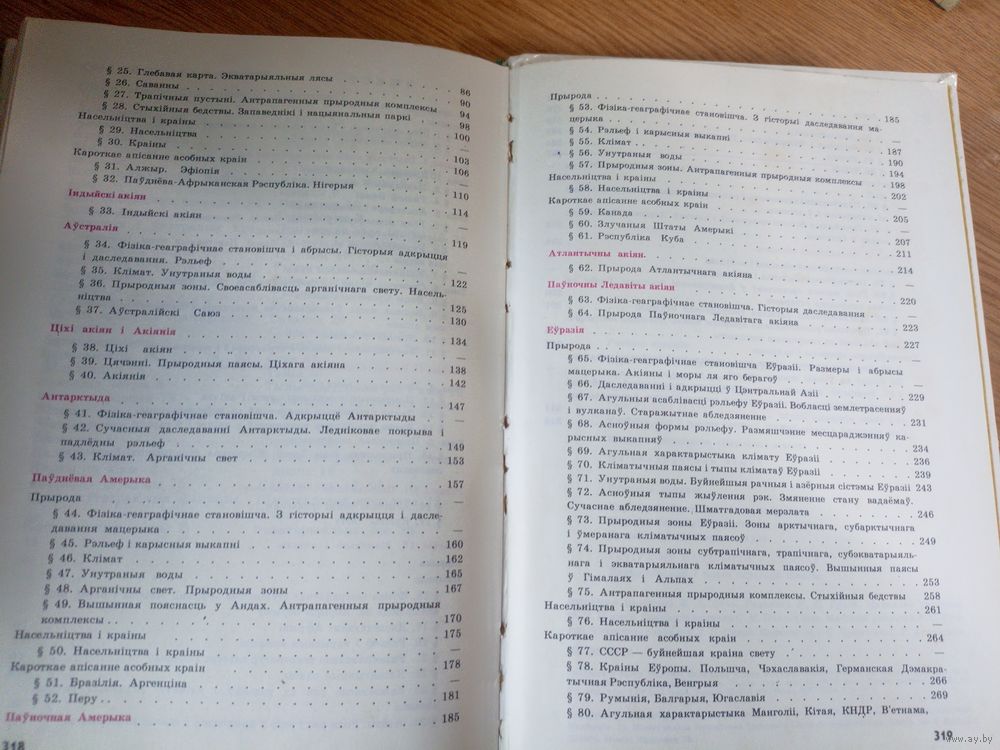 § 25. Глебавая карта. Экватарыяльныя лясы
§ 26. Саванны . . . 86
§ 27. Трапічныя пустыні. Антрапагенныя прыродныя комплексы 90
§ 28. Стыхійныя бедствы. Запаведнікі і нацыянальныя паркі 94
Насельніцтва і краіны . . . 98
§ 29. Насельніцтва . . . 100
§ 30. Краіны . . . —
Кароткае апісанне асобных краін . . . 103
§ 31. Алжыр. Эфіопія . . . 106
§ 32. Паўднёва-Афрыканская Рэспубліка. Нігерыя . . . —
Індыйскі акіян . . . 110
§ 33. Індыйскі акіян . . . 114
Аўстралія . . . —
§ 34. Фізіка-геаграфічнае становішча і абрысы. Гісторыя адкрыцця 119
і даследавання. Рэльеф . . . —
§ 35. Клімат. Унутраныя воды . . . 122
§ 36. Прыродныя зоны. Своеасаблівасць арганічнага свету. Насель-
ніцтва . . . 125
§ 37. Аўстралійскі Саюз . . . 130
Ціхі акіян і Акіянія . . . 134
§ 38. Ціхі акіян . . . —
§ 39. Цячэнні. Прыродныя паясы. Ціхага акіяна . . . 138
§ 40. Акіянія . . . 142
Антарктыда . . . 147
§ 41. Фізіка-геаграфічнае становішча. Адкрыццё Антарктыды . . . —
§ 42. Сучасныя даследаванні Антарктыды. Ледніковае покрыва і
падлёдны рэльеф . . . 149
§ 43. Клімат. Арганічны свет . . . 153
Паўднёвая Амерыка . . . 157
Прырода . . . —
§ 44. Фізіка-геаграфічнае становішча. З гісторыі адкрыцця і дасле-
давання мацерыка . . . —
§ 45. Рэльеф і карысныя выкапні . . . 160
§ 46. Клімат . . . 162
§ 47. Унутраныя воды . . . 165
§ 48. Арганічны свет. Прыродныя зоны . . . 167
§ 49. Вышынная пояснасць у Андах. Антрапагенныя прыродныя
комплексы . . . 170
Насельніцтва і краіны . . . 175
§ 50. Насельніцтва і краіны . . . —
Кароткае апісанне асобных краін . . . 178
§ 51. Бразілія. Аргенціна . . . —
§ 52. Перу . . . 181
Паўночная Амерыка . . . 185
318
Прырода . . . 185
§ 53. Фізіка-геаграфічнае становішча. З гісторыі даследавання ма-
церыка . . . —
§ 54. Рэльеф і карысныя выкапні . . . 187
§ 55. Клімат . . . 190
§ 56. Унутраныя воды . . . 194
§ 57. Прыродныя зоны. Антрапагенныя прыродныя комплексы . 198
Насельніцтва і краіны . . . 202
§ 58. Насельніцтва і краіны . . . —
Кароткае апісанне асобных краін . . . 205
§ 59. Канада . . . —
§ 60. Злучаныя Штаты Амерыкі . . . 207
§ 61. Рэспубліка Куба . . . 211
Атлантычны акіян. . . . 214
§ 62. Прырода Атлантычнага акіяна . . . —
Паўночны Ледавіты акіян . . . 220
§ 63. Фізіка-геаграфічнае становішча. Гісторыя даследавання . . . —
§ 64. Прырода Паўночнага Ледавітага акіяна . . . 223
Еўразія . . . 227
Прырода . . . —
§ 65. Фізіка-геаграфічнае становішча Еўразіі. Размеры і абрысы
мацерыка. Акіяны і моры ля яго берагоў . . . —
§ 66. Даследаванні і адкрыцці ў Цэнтральнай Азіі . . . 229
§ 67. Агульныя асаблівасці рэльефу Еўразіі. Вобласці землетрасенняў
і вулканаў. Старажытнае абледзяненне . . . 231
§ 68. Асноўныя формы рэльефу. Размяшчэнне месцараджэнняў ка-
рысных выкапняў . . . 234
§ 69. Агульная характарыстыка клімату Еўразіі . . . 236
§ 70. Кліматычныя паясы і тыпы кліматаў Еўразіі . . . 239
§ 71. Унутраныя воды. Буйнейшыя рачныя і азёрныя сістэмы Еўразіі 243
§ 72. Асноўныя тыпы жыўлення рэк. Змяненне стану вадаёмаў.
Сучаснае абледзяненне. Шматгадовая мерзлата . . . 246
§ 73. Прыродныя зоны Еўразіі. Зоны арктычнага, субарктычнага
і ўмеранага кліматычных паясоў . . . 249
§ 74. Прыродныя зоны субтрапічнага, трапічнага, субэкватарыяль-
нага і экватарыяльнага кліматычных паясоў. Вышынныя паясы
ў Гімалаях і Альпах . . . 253
§ 75. Антрапагенныя прыродныя комплексы. Стыхійныя бедствы 258
Насельніцтва і краіны . . . 261
§ 76. Насельніцтва і краіны . . . —
Кароткае апісанне асобных краін . . . 264
§ 77. СССР — буйнейшая краіна свету . . . —
§ 78. Краіны Еўропы. Польшча, Чэхаславакія, Германская Дэмакра-
тычная Рэспубліка, Венгрыя . . . 266
§ 79. Румынія, Балгарыя, Югаславія . . . 269
§ 80. Агульная характарыстыка Манголіі, Кітая, КНДР, В'етнама,
319
www.ay.by